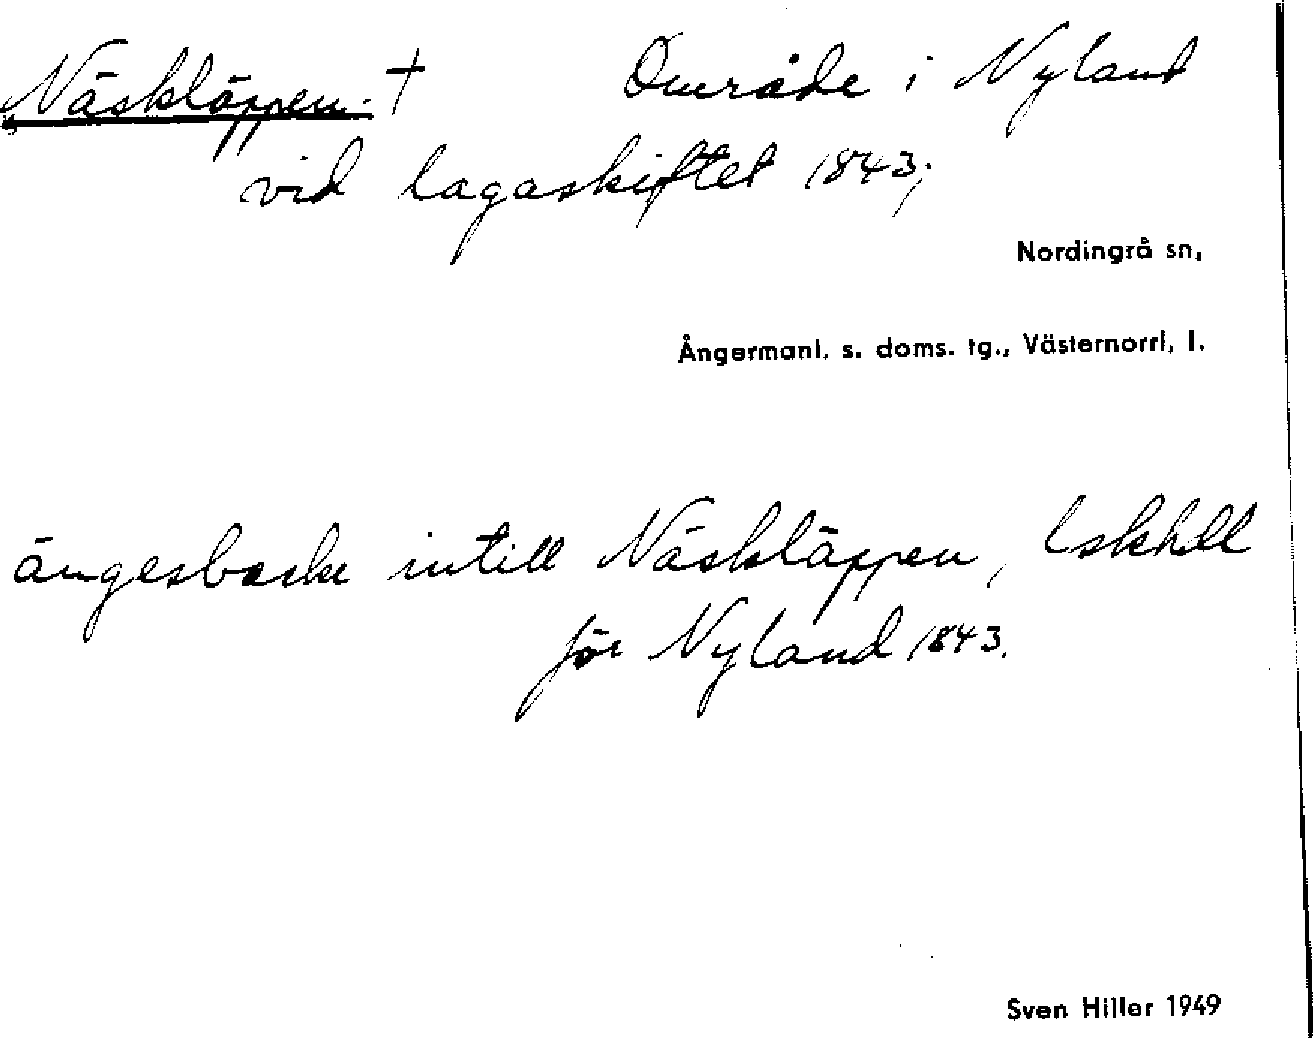 Näskläppen. † Område i Nyland
vid lagaskiftet 1843;
Nordingrå sn,
Ångermanl. s. doms. tg., Västernorrl. l.
ängesbacke intill Näskläppen, Lskhdl
för Nyland 1843.
Sven Hiller 1949